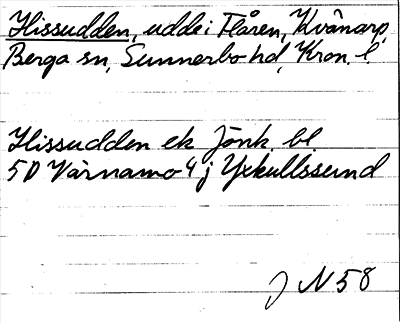 Hissudden, udde i Flåren, Kvänarp,
Berga sn, Sunnerbo hd, Kron. l.
Hissudden ek Jönk. bl.
5D Värnamo 4 j Yxkullssund
J N 58